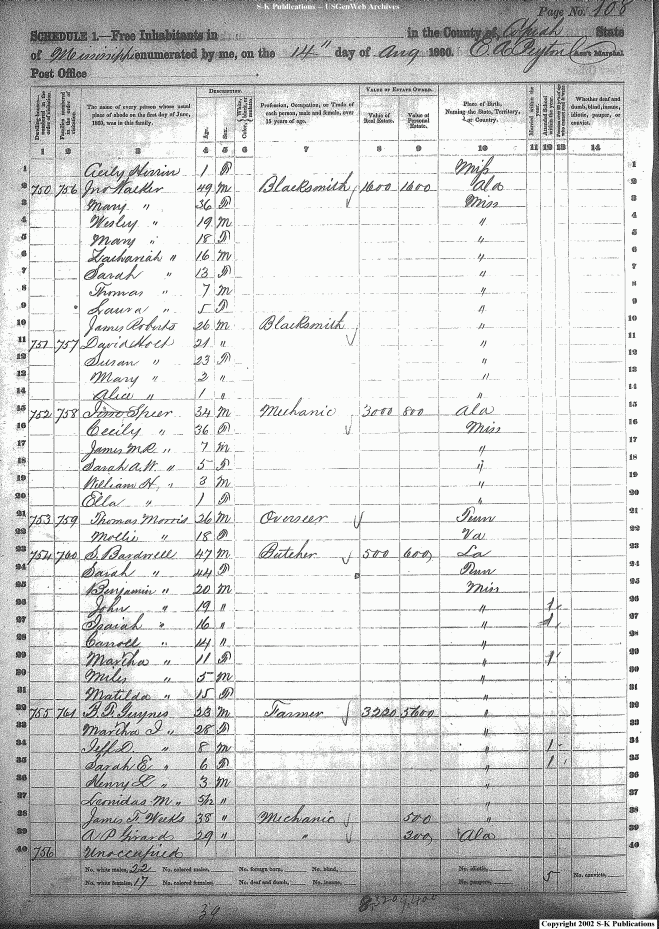 S-K Publications -- USGenWeb Archives
Page No. 108
SCHEDULE 1.—Free Inhabitants in in the County of, Copiah State
of Mississippi enumerated by me, on the 14" day of Aug 1860. E. A. Peyton Ass't Marshal.
Post Office
DESCRIPTION. VALUE OF ESTATE OWNED.
The name of every person whose usual place of abode on the first day of June, 1860, was in this family. Age. Sex. Profession, Occupation, or Trade of each person, male and female, over 15 years of age. Value of Real Estate. Value of Personal Estate. Place of Birth, Naming the State, Territory, or Country. Whether deaf and dumb, blind, insane, idiotic, pauper, or convict.
1 2 3 4 5 6 7 8 9 10 11 12 13 14
1 Cecily Herrin 1 F Miss 1
2 750 756 Jno Walker 49 M Blacksmith 1600 1600 Ala 2
3 Mary " 36 F Miss 3
4 Wesley " 19 M " 4
5 Mary " 18 F " 5
6 Zachariah " 16 M " 6
7 Sarah " 13 F " 7
8 Thomas " 7 M " 8
9 Laura " 5 F " 9
10 James Roberts 26 M Blacksmith " 10
11 751 757 David Holt 21 " " 11
12 Susan " 23 F " 12
13 Mary " 2 " " 13
14 Alice " 1 " " 14
15 752 758 Speer 34 M Mechanic 3000 800 Ala 15
16 Cecily " 36 F Miss 16
17 James M R " 7 M " 17
18 Sarah A. W. " 5 F " 18
19 William H, " 3 M " 19
20 Ella " 1 F " 20
21 753 759 Thomas Morris 26 M Overseer Tenn 21
22 Mollie " 18 F Va 22
23 754 760 S. Bardwell 47 M Butcher 500 600 La 23
24 Sarah " 44 F Tenn 24
25 Benjamin " 20 M Miss 25
26 John " 19 " " 1 26
27 Isaiah " 16 " " 1 27
28 Carroll " 14 " " 28
29 Martha " 11 F " 1 29
30 Miles " 5 M " 30
31 Matilda " 15 F " 31
32 755 761 B. F. Guynes 23 M Farmer 3220 5600 " 32
33 Martha J " 28 F " 33
34 Jeff D. " 8 M " 1 34
35 Sarah E " 6 F " 1 35
36 Henry L " 3 M " 36
37 Leonidas M " 5/12 " " 37
38 James F Weeks 38 " Mechanic 500 " 38
39 A P Girard 29 " " 300 Ala 39
40 756 Unoccupied 40
No. white males, 22 No. colored males, No. foreign born, No. blind, No. idiotic,
No. white females, 17 No. colored females, No. deaf and dumb, No. insane, No. paupers, 5 No. convicts,
39
Copyright 2002 S-K Publications